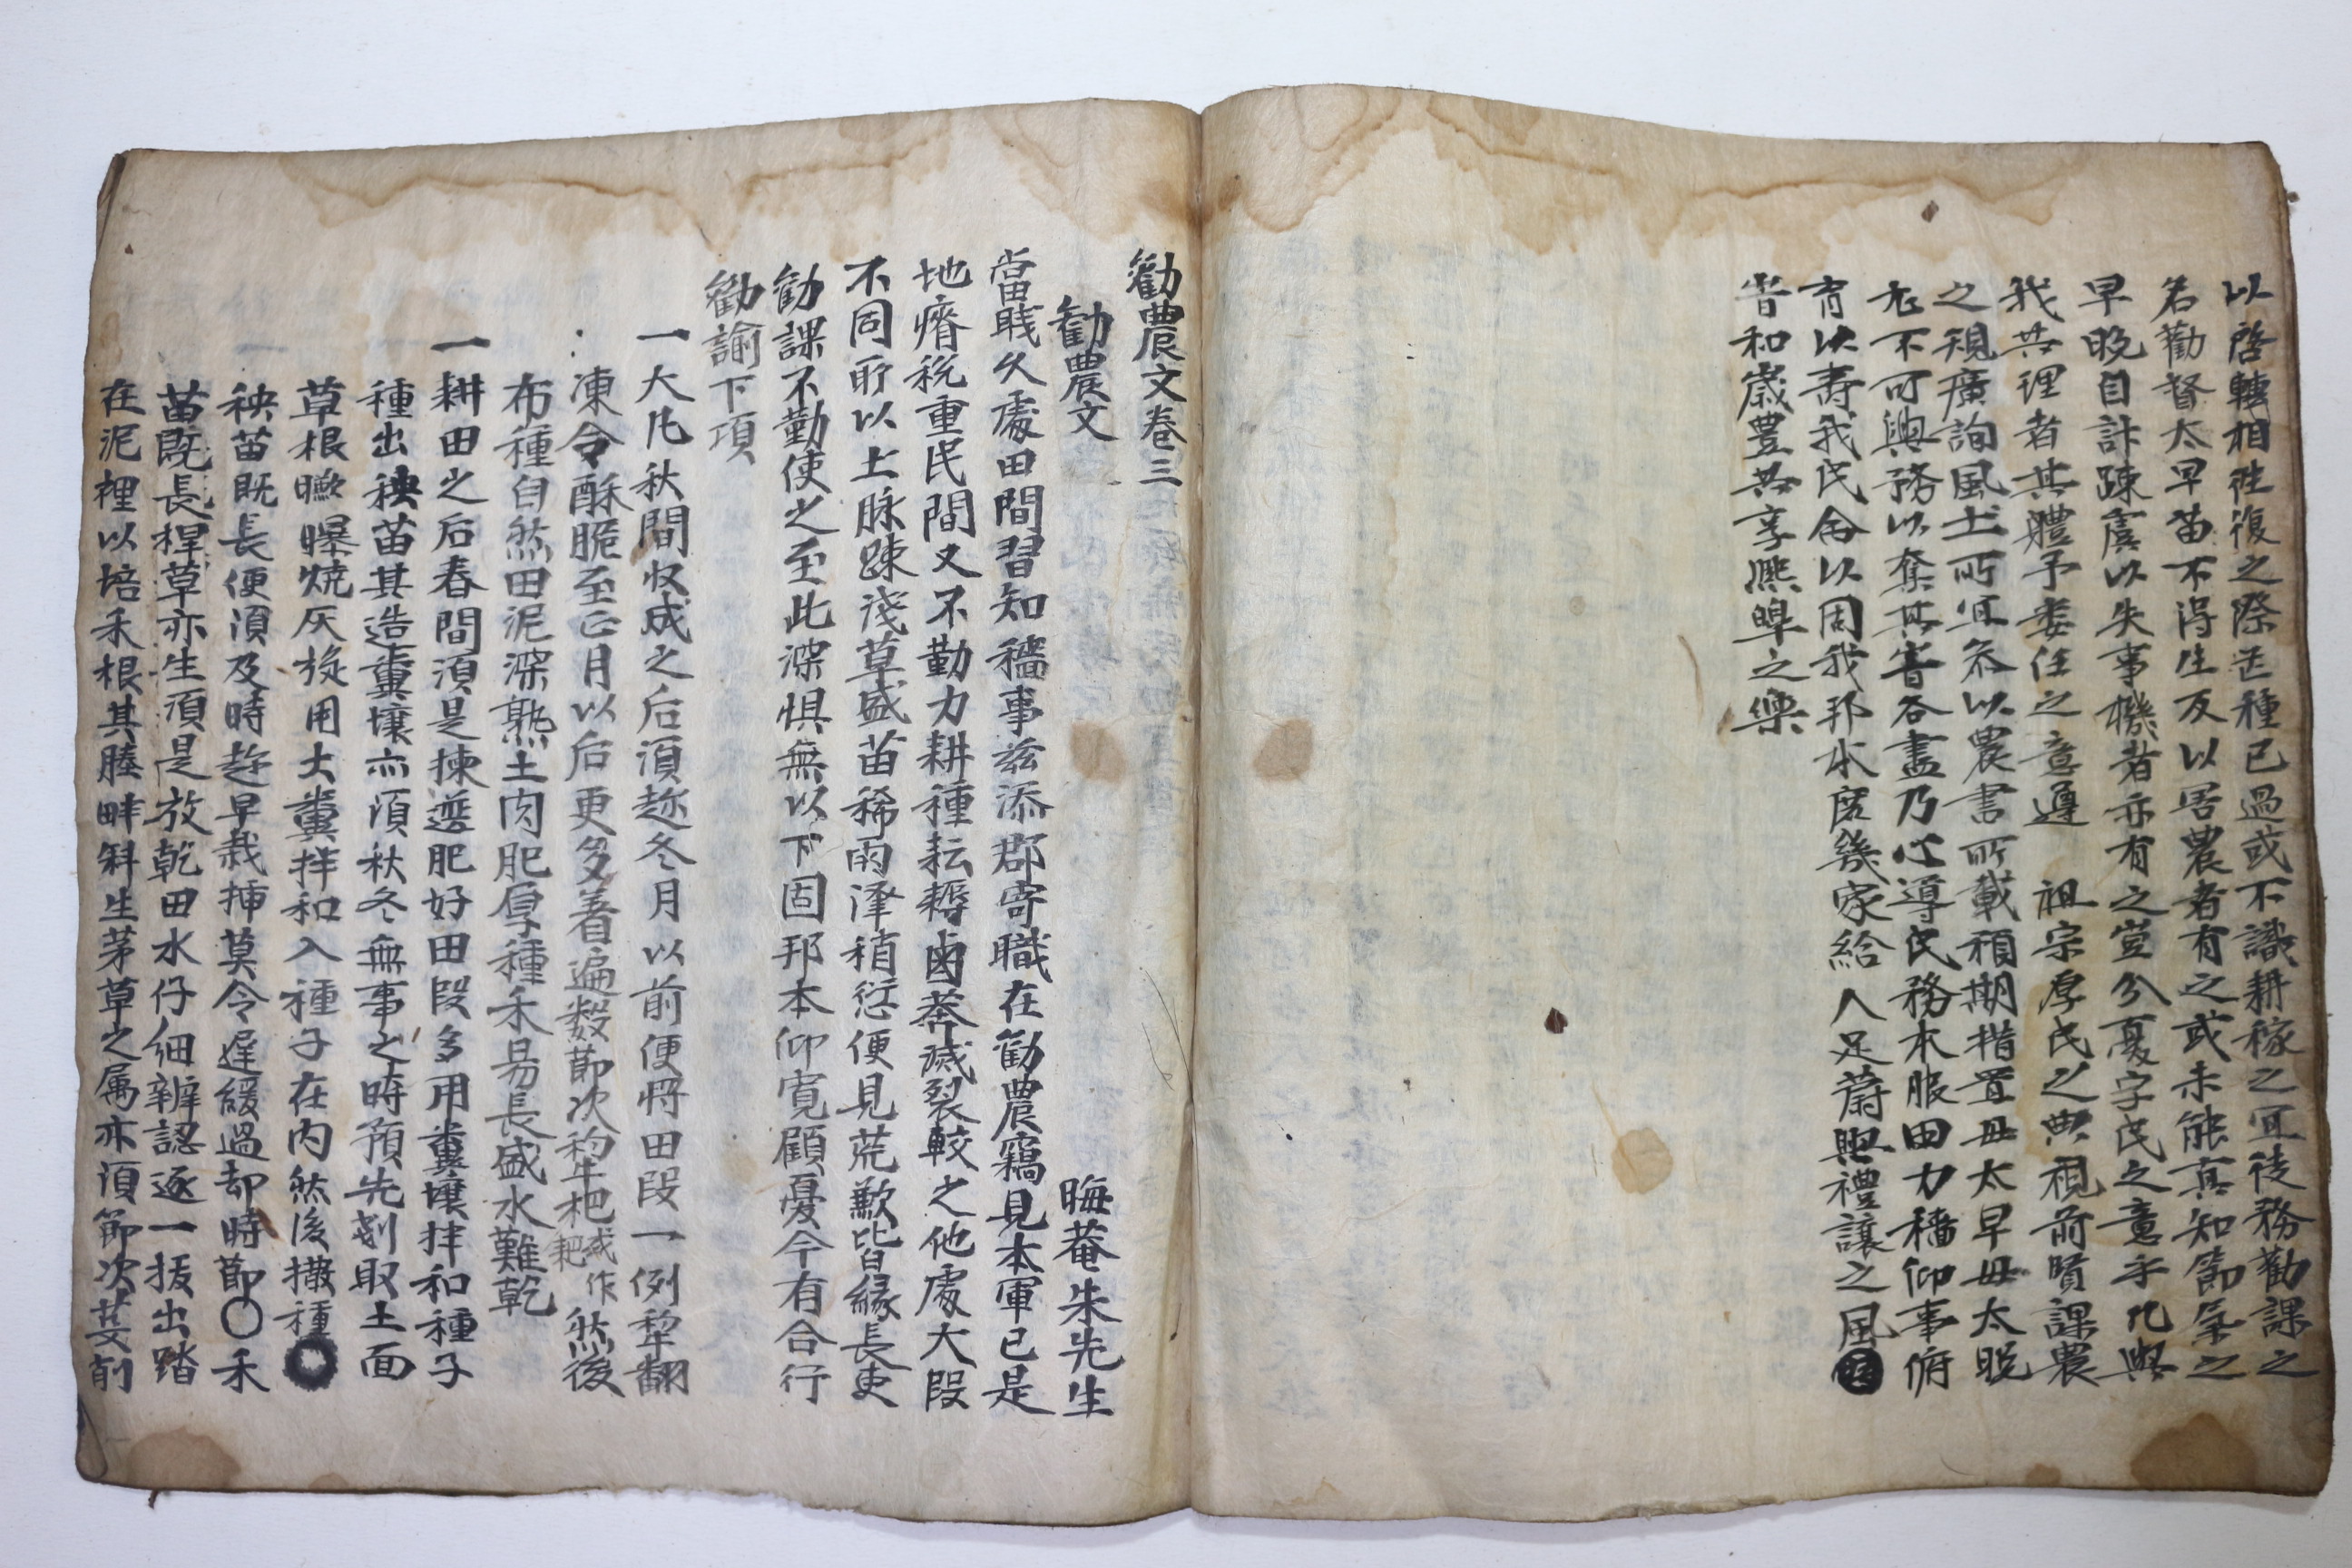 以啓轉相往復之際芒種已過或不識耕稼之宜徒務勸課之
名勸督太早苗不得生反以害農者有之或未能真知節氣之
早晚自計踈虞以失事機者亦有之豈分憂字民之意乎凡與
我共理者其體予委任之意遵 祖宗厚民之典視前賢課農
之規廣詢風土所宜叅以農書所載預期措置毋太早毋太晚
尤不可興務以奪其峕各盡乃心導民務本服田力穡仰事俯
育以壽我民命以固我邦本庶幾家給 人足蔚興禮讓之風
峕和歲豊共享熙皥之樂
勸農文卷三
勸農文 晦菴朱先生
當職久處田間習知穡事玆添郡寄職在勸農竊見本軍已是
地瘠稅重民間又不勤力耕種耘耨鹵莽滅裂較之他處大段
不同所以土脉踈淺草盛苗稀雨澤稍愆便見荒歉皆緣長吏
勸課不勤使之至此深惧無以下固邦本仰寬顧憂今有合行
勸諭下項
一大凡秋間收成之后須趂冬月以前便將田段一例犂翻
凍令酥脆至正月以后更多著遍數節次犂杷或作耙然後
布種自然田泥深熟土肉肥厚種禾易長盛水難乾
一耕田之后春間須是揀選肥好田段多用糞壤拌和種子
種出秧苗其造糞壤亦須秋冬無事之時預先剗取土面
草根曬曝燒灰旋用大糞拌和入種子在內然後撒種
秧苗旣長便須及時趂早栽揷莫令遲緩過却時節〇禾
苗旣長稈草亦生須是放乾田水仔細辨認逐一拔出踏
在泥裡以培禾根其塍畔斜生茅草之属亦須節次芟削